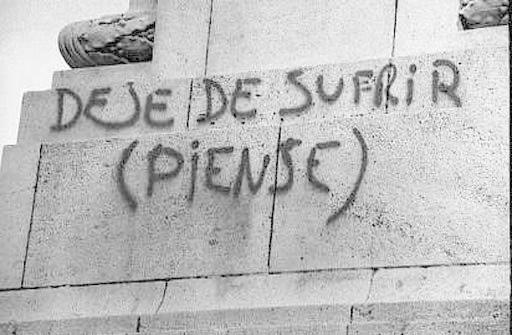 DEJE DE SUFRIR
(PIENSE)